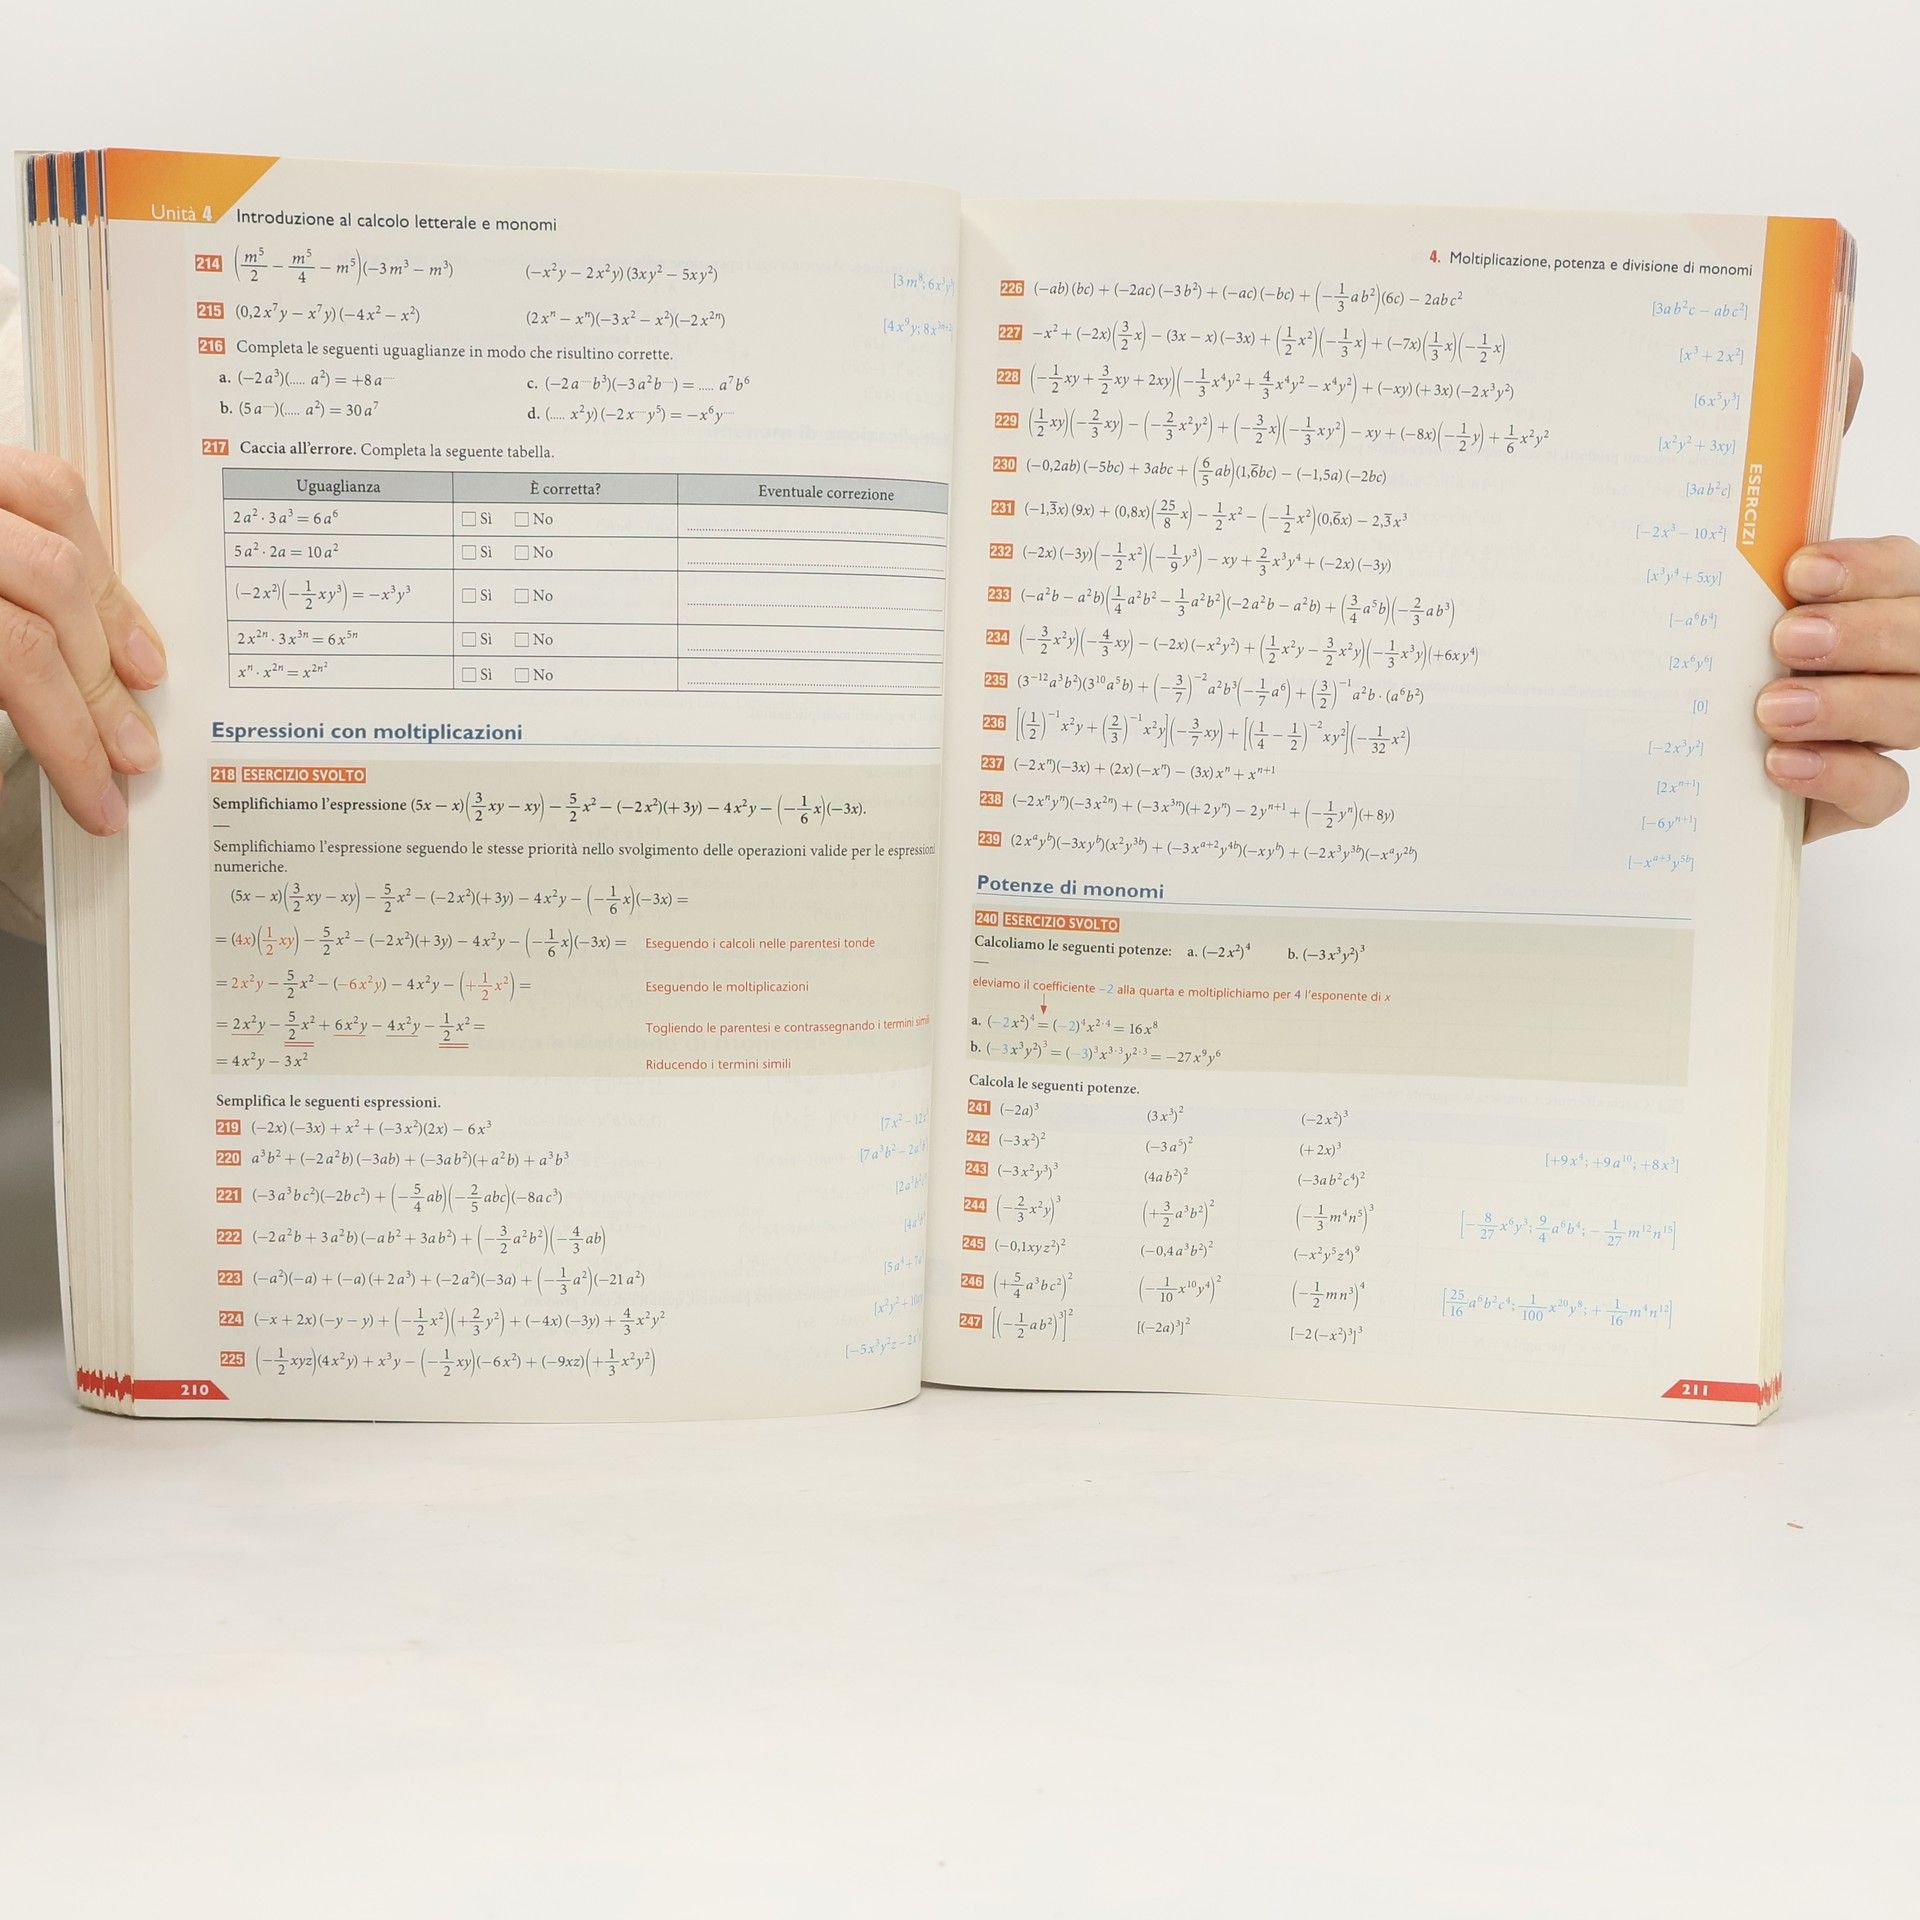 Unità 4 Introduzione al calcolo letterale e monomi
214 (m⁵/2 − m⁵/4 − m⁵)(−3m³ − m³) (−x²y − 2x²y)(3xy² − 5xy²) [3m⁸; 6x³y³
215 (0,2x⁷y − x⁷y)(−4x² − x²) (2xⁿ − xⁿ)(−3x² − x²)(−2x²ⁿ) [4x⁹y; 8x³ⁿ⁺²
216 Completa le seguenti uguaglianze in modo che risultino corrette.
a. (−2a³)(..... a²) = +8a^.... c. (−2a^.... b³)(−3a²b^....) = ..... a⁷b⁶
b. (5a^....)(..... a²) = 30a⁷ d. (..... x²y)(−2x^.... y⁵) = −x⁶y^....
217 Caccia all'errore. Completa la seguente tabella.
Uguaglianza È corretta? Eventuale correzione
2a² · 3a³ = 6a⁶ □ Sì □ No
5a² · 2a = 10a² □ Sì □ No
(−2x²)(−1/2 xy³) = −x³y³ □ Sì □ No
2x²ⁿ · 3x³ⁿ = 6x⁵ⁿ □ Sì □ No
xⁿ · x²ⁿ = x^(2n²) □ Sì □ No
Espressioni con moltiplicazioni
218 ESERCIZIO SVOLTO
Semplifichiamo l'espressione (5x − x)(3/2 xy − xy) − 5/2 x² − (−2x²)(+3y) − 4x²y − (−1/6 x)(−3x).
Semplifichiamo l'espressione seguendo le stesse priorità nello svolgimento delle operazioni valide per le espressioni
numeriche.
(5x − x)(3/2 xy − xy) − 5/2 x² − (−2x²)(+3y) − 4x²y − (−1/6 x)(−3x) =
= (4x)(1/2 xy) − 5/2 x² − (−2x²)(+3y) − 4x²y − (−1/6 x)(−3x) = Eseguendo i calcoli nelle parentesi tonde
= 2x²y − 5/2 x² − (−6x²y) − 4x²y − (+1/2 x²) = Eseguendo le moltiplicazioni
= 2x²y − 5/2 x² + 6x²y − 4x²y − 1/2 x² = Togliendo le parentesi e contrassegnando i termini simili
= 4x²y − 3x² Riducendo i termini simili
Semplifica le seguenti espressioni.
219 (−2x)(−3x) + x² + (−3x²)(2x) − 6x³ [7x² − 12x
220 a³b² + (−2a²b)(−3ab) + (−3ab²)(+a²b) + a³b³ [7a³b² − 2a³b
221 (−3a³bc²)(−2bc²) + (−5/4 ab)(−2/5 abc)(−8ac³)
222 (−2a²b + 3a²b)(−ab² + 3ab²) + (−3/2 a²b²)(−4/3 ab)
223 (−a²)(−a) + (−a)(+2a³) + (−2a²)(−3a) + (−1/3 a²)(−21a²) [5a⁴ + 7a
224 (−x + 2x)(−y − y) + (−1/2 x²)(+2/3 y²) + (−4x)(−3y) + 4/3 x²y² [x²y² + 10xy
225 (−1/2 xyz)(4x²y) + x³y − (−1/2 xy)(−6x²) + (−9xz)(+1/3 x²y²) [−5x³y²z − 2x³
210
4. Moltiplicazione, potenza e divisione di monomi
226 (−ab)(bc) + (−2ac)(−3b²) + (−ac)(−bc) + (−1/3 ab²)(6c) − 2abc² [3ab²c − abc²]
227 −x² + (−2x)(3/2 x) − (3x − x)(−3x) + (1/2 x²)(−1/3 x) + (−7x)(1/3 x)(−1/2 x) [x³ + 2x²]
228 (−1/2 xy + 3/2 xy + 2xy)(−1/3 x⁴y² + 4/3 x⁴y² − x⁴y²) + (−xy)(+3x)(−2x³y²) [6x⁵y³]
229 (1/2 xy)(−2/3 xy) − (−2/3 x²y²) + (−3/2 x)(−1/3 xy²) − xy + (−8x)(−1/2 y) + 1/6 x²y² [x²y² + 3xy]
230 (−0,2ab)(−5bc) + 3abc + (6/5 ab)(1,6̅bc) − (−1,5a)(−2bc) [3ab²c]
231 (−1,3̅x)(9x) + (0,8x)(25/8 x) − 1/2 x² − (−1/2 x²)(0,6̅x) − 2,3̅x³ [−2x³ − 10x²]
232 (−2x)(−3y)(−1/2 x²)(−1/9 y³) − xy + 2/3 x³y⁴ + (−2x)(−3y) [x³y⁴ + 5xy]
233 (−a²b − a²b)(1/4 a²b² − 1/3 a²b²)(−2a²b − a²b) + (3/4 a⁵b)(−2/3 ab³) [−a⁶b⁴]
234 (−3/2 x²y)(−4/3 xy) − (−2x)(−x²y²) + (1/2 x²y − 3/2 x²y)(−1/3 x³y)(+6xy⁴) [2x⁶y⁶]
235 (3⁻¹²a³b²)(3¹⁰a⁵b) + (−3/7)⁻² a²b³(−1/7 a⁶) + (3/2)⁻¹ a²b · (a⁶b²) [0]
236 [(1/2)⁻¹ x²y + (2/3)⁻¹ x²y](−3/7 xy) + [(1/4 − 1/2)⁻² xy²](−1/32 x²) [−2x³y²]
237 (−2xⁿ)(−3x) + (2x)(−xⁿ) − (3x)xⁿ + xⁿ⁺¹ [2xⁿ⁺¹]
238 (−2xⁿyⁿ)(−3x²ⁿ) + (−3x³ⁿ)(+2yⁿ) − 2yⁿ⁺¹ + (−1/2 yⁿ)(+8y) [−6yⁿ⁺¹]
239 (2xᵃyᵇ)(−3xyᵇ)(x²y³ᵇ) + (−3xᵃ⁺²y⁴ᵇ)(−xyᵇ) + (−2x³y³ᵇ)(−xᵃy²ᵇ) [−xᵃ⁺³y⁵ᵇ]
ESERCIZI
Potenze di monomi
240 ESERCIZIO SVOLTO
Calcoliamo le seguenti potenze: a. (−2x²)⁴ b. (−3x³y²)³
eleviamo il coefficiente −2 alla quarta e moltiplichiamo per 4 l'esponente di x
a. (−2x²)⁴ = (−2)⁴x²·⁴ = 16x⁸
b. (−3x³y²)³ = (−3)³x³·³y²·³ = −27x⁹y⁶
Calcola le seguenti potenze.
241 (−2a)³ (3x³)² (−2x²)³
242 (−3x²)² (−3a⁵)² (+2x)³ [+9x⁴; +9a¹⁰; +8x³]
243 (−3x²y³)³ (4ab²)² (−3ab²c⁴)²
244 (−2/3 x²y)³ (+3/2 a³b²)² (−1/3 m⁴n⁵)³ [−8/27 x⁶y³; 9/4 a⁶b⁴; −1/27 m¹²n¹⁵]
245 (−0,1xyz²)² (−0,4a³b²)² (−x²y⁵z⁴)⁹
246 (+5/4 a³bc²)² (−1/10 x¹⁰y⁴)² (−1/2 mn³)⁴ [25/16 a⁶b²c⁴; 1/100 x²⁰y⁸; +1/16 m⁴n¹²]
247 [(−1/2 ab²)³]² [(−2a)³]² [−2(−x²)³]³
211